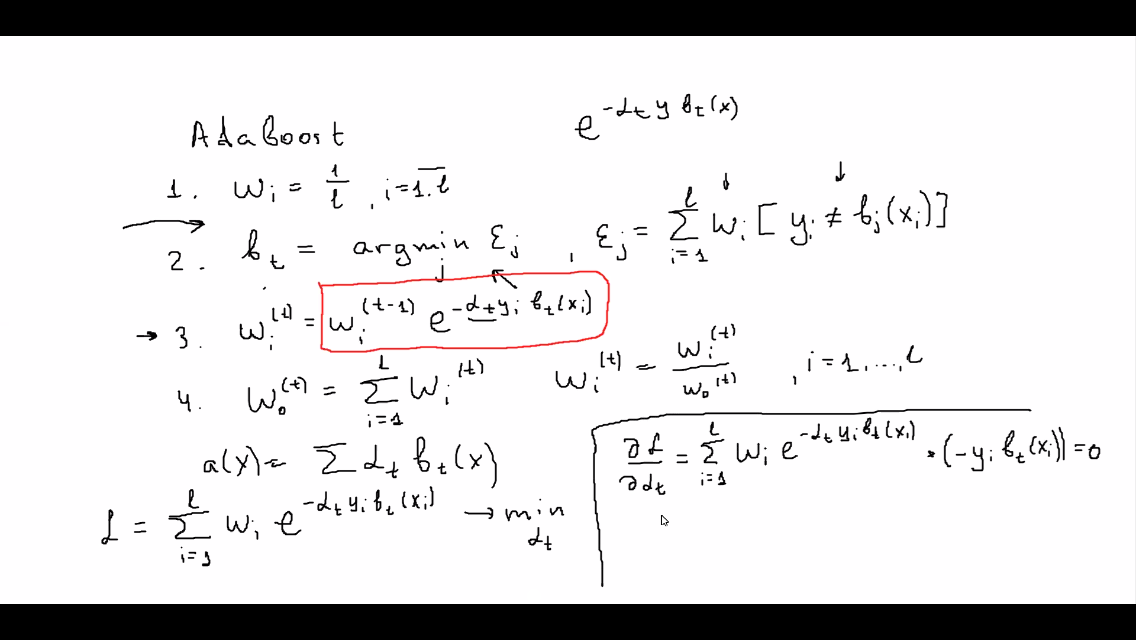 Adaboost
e^{-α_t y b_t(x)}
1. w_i = 1/l , i=1.l
2. b_t = argmin_j ε_j , ε_j = Σ_{i=1}^{l} w_i [ y_i ≠ b_j(x_i)]
3. w_i^{(t)} = w_i^{(t-1)} e^{-α_t y_i b_t(x_i)}
4. w_0^{(t)} = Σ_{i=1}^{l} w_i^{(t)} w_i^{(t)} = w_i^{(t)} / w_0^{(t)} , i=1,...,l
a(x) = Σ α_t b_t(x)
L = Σ_{i=1}^{l} w_i e^{-α_t y_i b_t(x_i)} → min_{α_t}
∂L/∂α_t = Σ_{i=1}^{l} w_i e^{-α_t y_i b_t(x_i)} · (-y_i b_t(x_i)) = 0